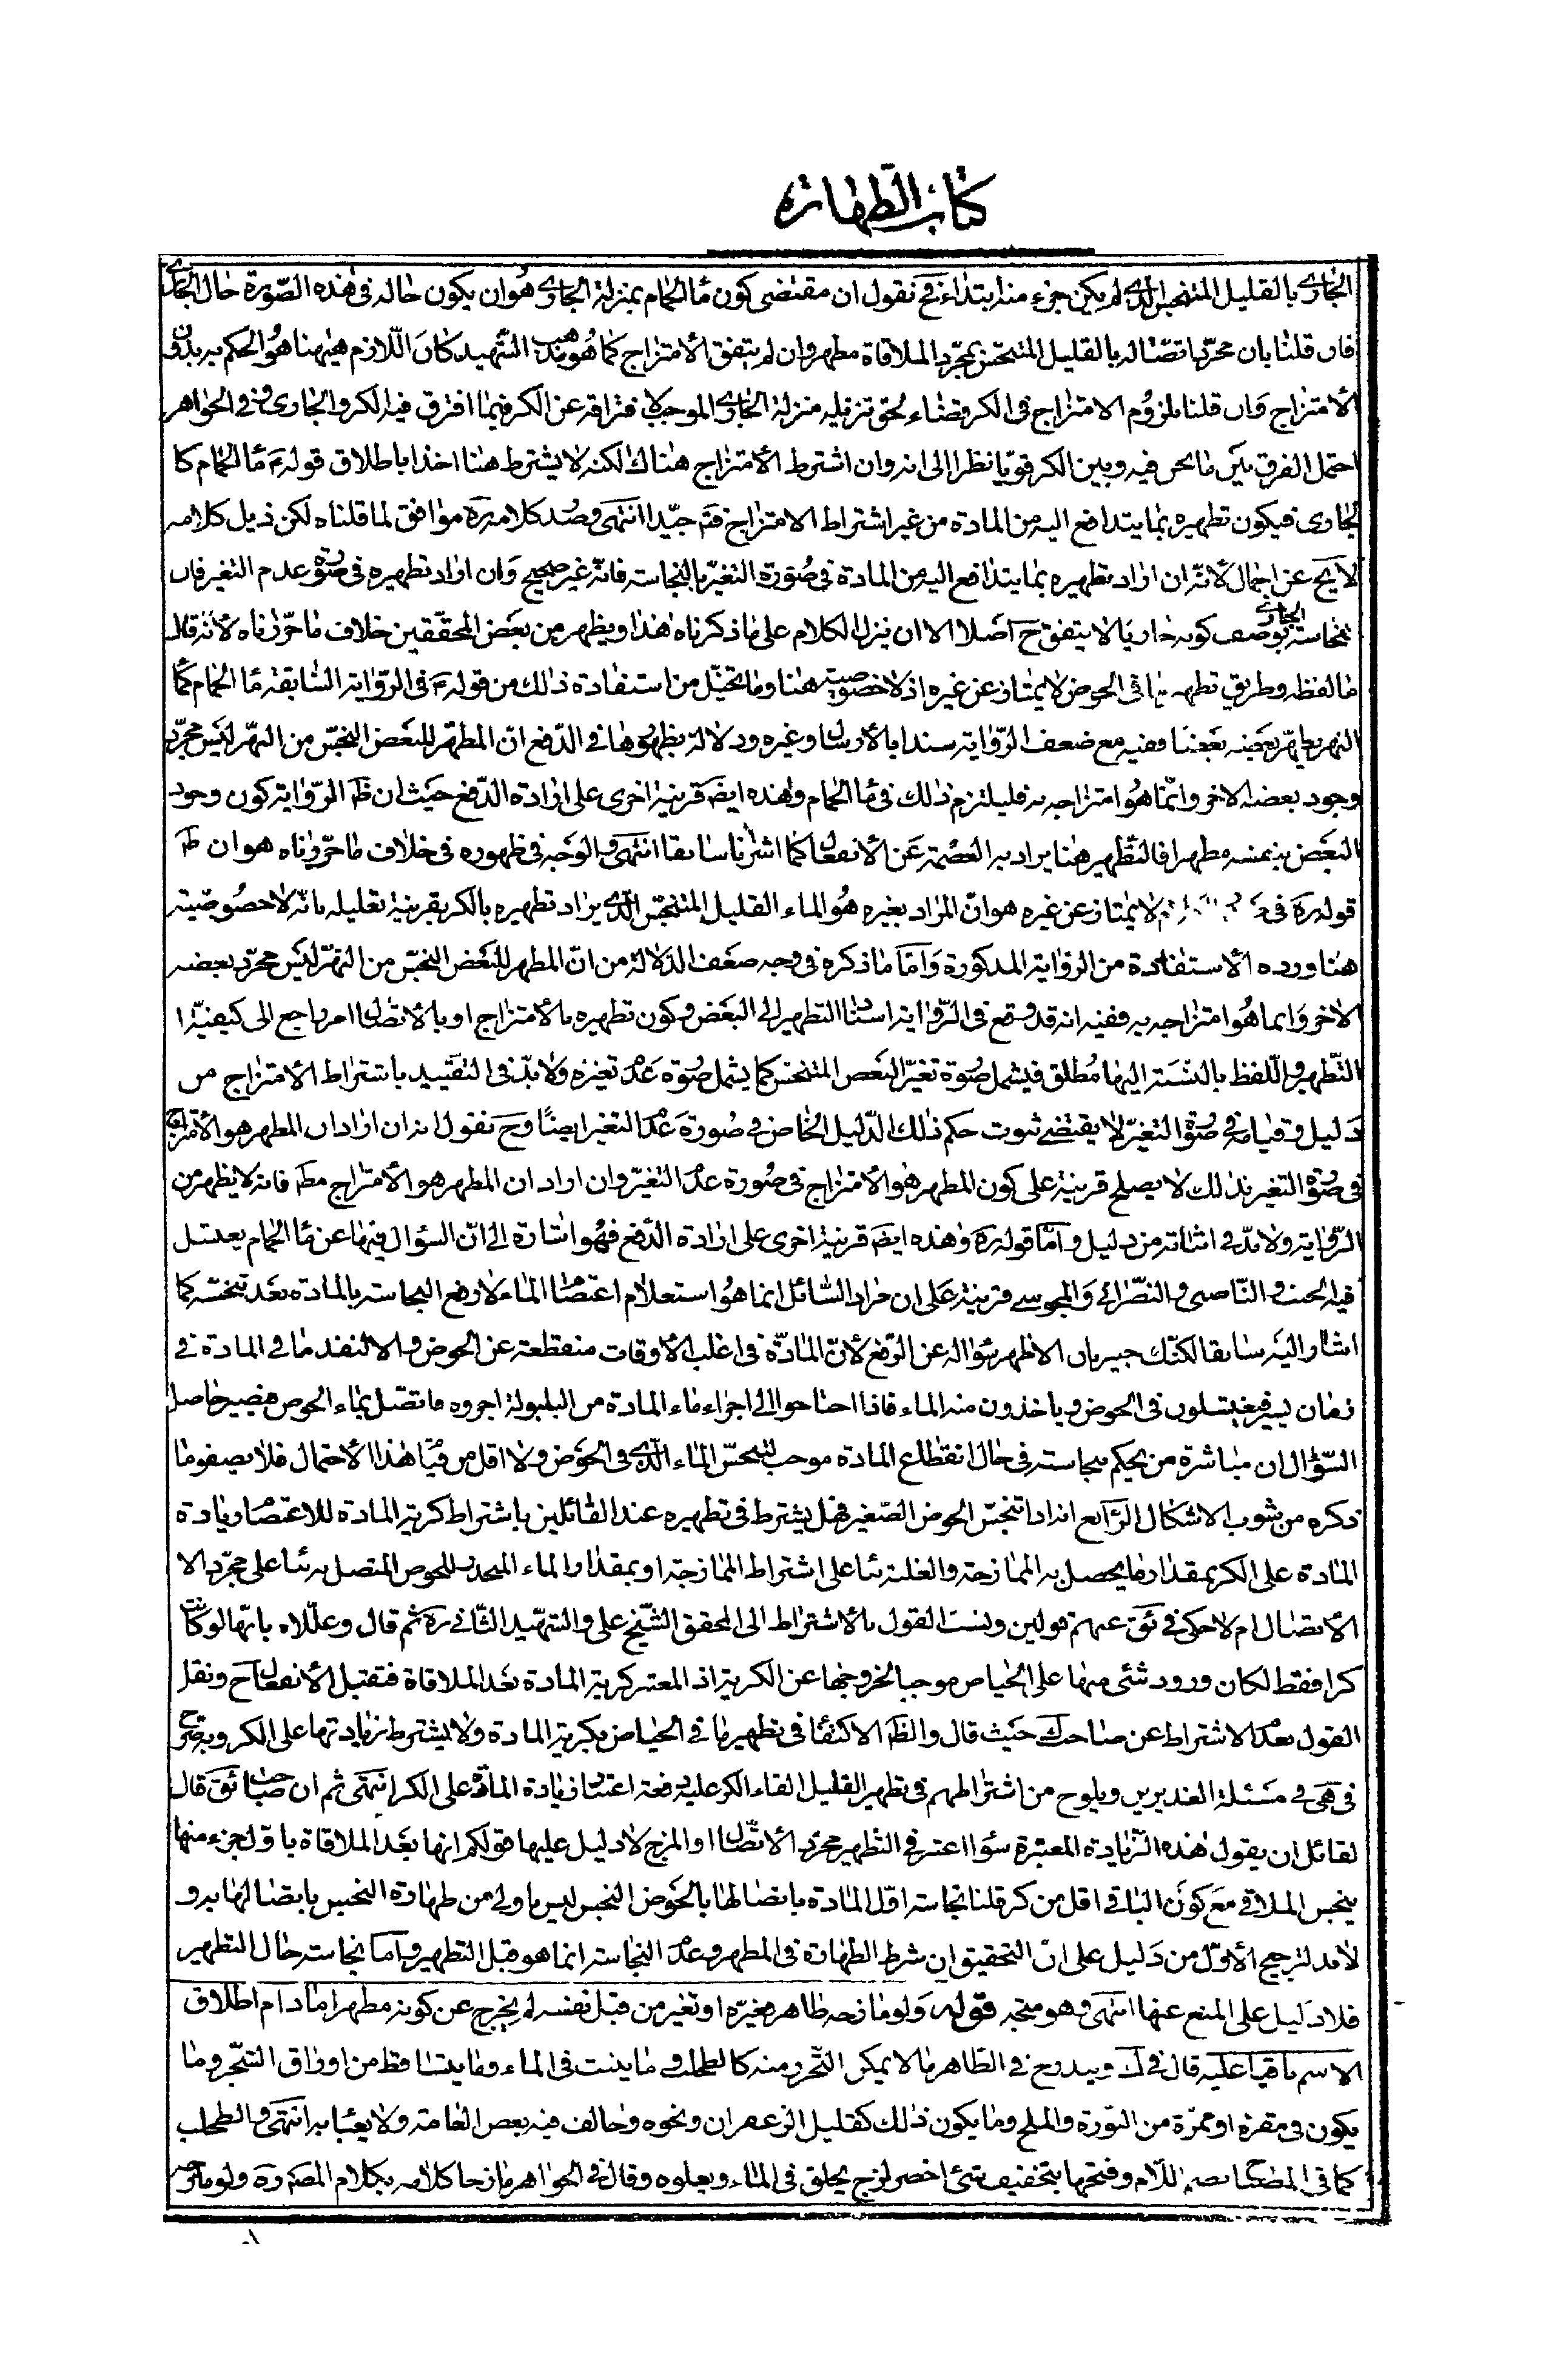 كتاب الطهارة
الجاري بالقليل المتنجس الذي لم يكن جزء منه ابتداء فح نقول ان مقتضى كون ماء الحمام بمنزلة الجاري هو ان يكون حاله في هذه الصورة حال الجاري
فان قلنا بان مجرد اتصاله بالقليل المتنجس بمجرد الملاقاة مطهر وان لم يتفق الامتزاج كما هو مذهب الشهيد كان اللازم هيهنا هو الحكم به بدون
الامتزاج وان قلنا بلزوم الامتزاج في الكر قضاء لحق تنزيله منزلة الجاري الموجب لافتراقه عن الكر فيما افترق فيه الكر والجاري وفي الجواهر
احتمل الفرق بين ما نحن فيه وبين الكر قويا نظرا الى انه وان اشترط الامتزاج هناك لكنه لا يشترط هنا اخذا باطلاق قوله ع ماء الحمام كا
لجاري فيكون تطهيره بما يتدافع اليه من المادة من غير اشتراط الامتزاج فتم جيدا انتهى وصدر كلامه ره موافق لما قلناه لكن ذيل كلامه
لا يخ عن اجمال لانه ان اراد تطهيره بما يتدافع اليه من المادة في صورة التغير بالنجاسة فانه غير صحيح وان اراد تطهيره في صورة عدم التغير فان
نجاسة الجاري بوصف كونه جاريا لا يتفق ح اصلا الا ان ينزل الكلام على ما ذكرناه هذا ويظهر من بعض المحققين خلاف ما حررناه لانه قال
ما لفظه وطريق تطهير باقي الحوض لا يمتاز عن غيره اذ لا خصوصية هنا وما يتخيل من استفادة ذلك من قوله ع في الرواية السابقة ماء الحمام كماء
النهر يطهر بعضه بعضا وفيه مع ضعف الرواية سندا بالارسال وغيره ودلالة بظهورها في الدفع ان المطهر للبعض النجس من النهر ليس مجرد
وجود بعضه الاخر وانما هو امتزاجه به فليلتزم ذلك في ماء الحمام وهذه ايضا قرينة اخرى على ارادة الدفع حيث ان ظ الرواية كون وجود
البعض بنفسه مطهرا فالتطهير هنا يراد به العصمة عن الانفعال كما اشرنا سابقا انتهى والوجه في ظهوره في خلاف ما حررناه هو ان ظ
قوله ره في لا يمتاز عن غيره هو ان المراد بغيره هو الماء القليل المتنجس الذي يراد تطهيره بالكر بقرينة تعليله بانه لا خصوصية
هنا ورده الاستفادة من الرواية المذكورة واما ما ذكره في وجه ضعف الدلالة من ان المطهر للبعض النجس من النهر ليس مجرد بعضه
الاخر وانما هو امتزاجه به ففيه انه قد وقع في الرواية اسناد التطهير الى البعض وكون تطهيره بالامتزاج او بالاتصال امر راجع الى كيفية
التطهير واللفظ بالنسبة اليها مطلق فيشمل صورة تغير البعض المتنجس كما يشمل صورة عدم تغيره ولا بد في التقييد باشتراط الامتزاج من
دليل وقيامه في صورة التغير لا يقتضي ثبوت حكم ذلك الدليل الخاص في صورة عدم التغير ايضا وح نقول انه ان اراد ان المطهر هو الامتزاج
في صورة التغير فذلك لا يصلح قرينة على كون المطهر هو الامتزاج في صورة عدم التغير وان اراد ان المطهر هو الامتزاج مط فانه لا يظهر من
الرواية ولا بد في اثباته من دليل واما قوله ره وهذه ايضا قرينة اخرى على ارادة الدفع فهو اشارة الى ان السؤال فيها عن ماء الحمام يغتسل
فيه الجنب والناصبي والنصراني والمجوسي قرينة على ان مراد السائل انما هو استعلام اعتصام الماء لا رفع النجاسة بالمادة بعد تنجسه كما
اشار اليه سابقا لكنك خبير بان الاظهر سؤاله عن الرفع لان المادة في اغلب الاوقات منقطعة عن الحوض والا لنفد ما في المادة في
زمان يسير فيغتسلون في الحوض وياخذون منه الماء فاذا احتاجوا الى اجراء ماء المادة من البلبولة اجروه فاتصل بماء الحوض فيصير حاصل
السؤال ان مباشرة من يحكم بنجاسته في حال انقطاع المادة موجب لتنجس الماء الذي في الحوض ولا اقل من قيام هذا الاحتمال فلا يصفو ما
ذكره من شوب الاشكال الرابع انه اذا تنجس الحوض الصغير فهل يشترط في تطهيره عند القائلين باشتراط كرية المادة للاعتصام زيادة
المادة على الكر بمقدار ما يحصل به الممازجة والغلبة بناء على اشتراط الممازجة او بمقدار الماء المنحدر للحوض المتصل به بناء على مجرد الا
الاتصال ام لا حكى في ئق عنهم قولين ونسب القول بالاشتراط الى المحقق الشيخ علي والشهيد الثاني ره ثم قال وعللاه بانها لو كانت
كرا فقط لكان ورود شئ منها على الحياض موجبا لخروجها عن الكرية اذ المعتبر كرية المادة بعد الملاقاة فتقبل الانفعال ح ونقل
القول بعدم الاشتراط عن صاحب ك حيث قال والظ الاكتفاء في تطهير ما في الحياض بكرية المادة ولا يشترط زيادتها على الكر وبه صرح
في هى في مسئلة الغديرين ويلوح من اشتراطهم في تطهير القليل القاء الكر عليه دفعة اعتبار زيادة المادة على الكر انتهى ثم ان صاحب ئق قال
لقائل ان يقول هذه الزيادة المعتبرة سواء اعتبر في التطهير مجرد الاتصال او المزج لا دليل عليها قولكم انها بعد الملاقاة باول جزء منها
ينجس الملاقي مع كون الباقي اقل من كر قلنا نجاسة اول المادة باتصالها بالحوض النجس ليس باولى من طهارة النجس باتصالها به و
لا بد لترجيح الاول من دليل على ان التحقيق ان شرط الطهارة في المطهر وعدم النجاسة انما هو قبل التطهير واما نجاسته حال التطهير
فلا دليل على المنع عنها انتهى وهو متجه قوله ولو مازجه طاهر فغيره او تغير من قبل نفسه لم يخرج عن كونه مطهرا ما دام اطلاق
الاسم باقيا عليه قال في ك ويندرج في الطاهر ما لا يمكن التحرز منه كالطحلب وما ينبت في الماء وما يتساقط من اوراق الشجر وما
يكون في مقره او ممره من النورة والملح وما يكون ذلك كقليل الزعفران ونحوه وخالف فيه بعض العامة ولا يعبأ به انتهى والطحلب
كما في المصباح بضم اللام وفتحها بتخفيف شئ اخضر لزج يخلق في الماء ويعلوه وقال في الجواهر مازجا كلامه بكلام المصنف ره ولو مازجه